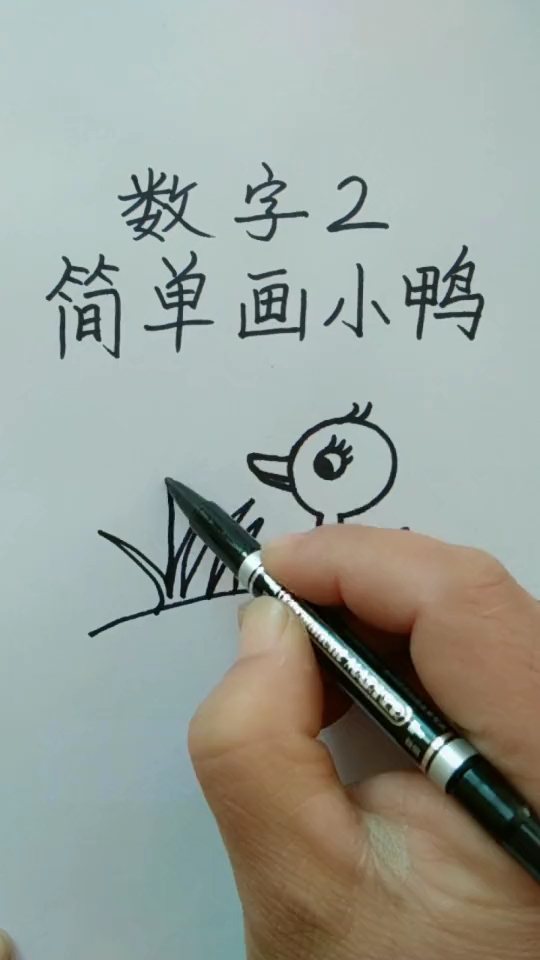 数字2
简单画小鸭